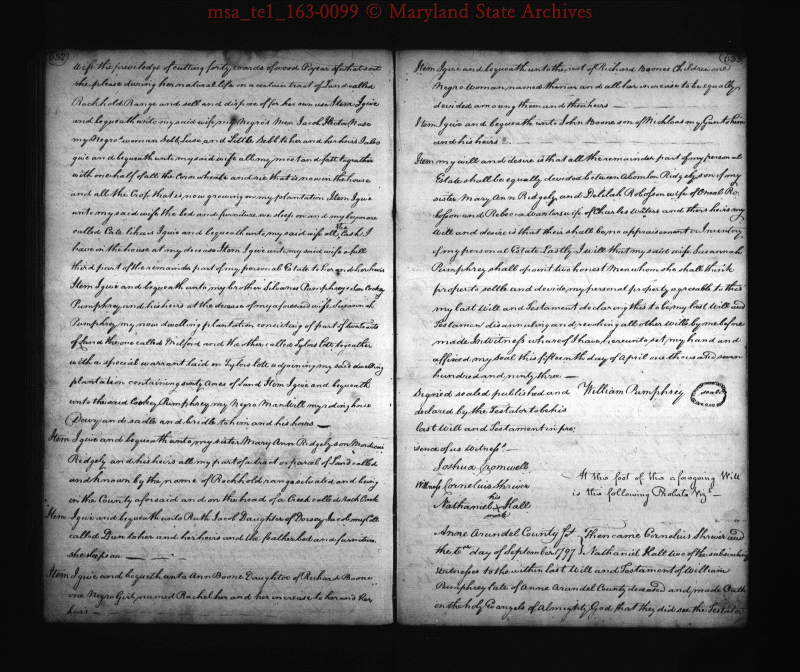 msa_te1_163-0099 © Maryland State Archives
032
wife the priviledge of cutting forty coards of wood P year of what sort
she please during her natural life on a certain tract of Land called
Rockhold Range and sell and dispose of for her own use Item I give
and bequeath unto my said wife my Negroe Men Jacob Hector Nace
my Negroe woman Jebb, Luse and Little Debb to her and her heirs I also
give and bequeath unto my said wife all my meat and fatt together
with one half of all the Corn wheate and rie that is now in the house
and all the Crop that is now growing on my plantation Item I give
unto my said wife the bed and furniture we sleep on and my bay mare
called Cate likewis I give and bequeath unto my said wife all the Cash I
have in the house at my decease Item I give unto my said wife a full
third part of the remainder part of my personal Estate to her and her heirs
Item I give and bequeath unto my brother Silvanus Pumphrey son Cockey
Pumphrey and his heirs at the decease of my aforesaid wife Susannah
Pumphrey my now dwelling plantation consisting of part of two tracts
of Land the one called Milford and the other called Tylors lote together
with a special warrant laid on Tylors lote adjoyning my said dwelling
plantation containing sixty Acres of Land Item I give and bequeath
unto the said Cockey Pumphrey my Negro Man Will my riding horse
Davy and sadle and bridle to him and his heirs —
Item I give and bequeath unto my sister Mary Ann Ridgely son Mordecai
Ridgely and his heirs all my part of a tract or parcel of Land called
and known by the name of Rockhold range setuated and being
in the County aforsaid and on the head of a Creek called Rock Creek
Item I give and bequeath unto Ruth Jacob Daughter of Dorsey Jacob my Colt
called Dun to her and her heirs and the featherbed and furniture
she sleeps on
Item I give and bequeath unto Ann Boone Daughter of Richard Boone
one Negro Girl named Rachel her and her increase to her and her
heirs —
033
Item I give and bequeath unto the rest of Richard Boones Children one
Negro Woman named and all her increase to be equally
devided amoung them and their heirs —
Item I give and bequeath unto John Boone son of Nichloas my Gun to him
and his heirs
Item my will and desire is that all the remainder part of my personal
Estate shall be equally devided between Absolom Ridgely son of my
sister Mary Ann Ridgely and Delilah Robosson wife of Oneal Ro-
bosson and Rebecca Warters wife of Charles Waters and there heirs my
Will and desire is that their shall be no appraisement or Inventory
of my personal Estate Lastly I will that my said wife Susannah
Pumphrey shall apoint two honest Men whom she shall think
proper to settle and devide my personal property agreeable to this
my last Will and Testament declaring this to be my last Will and
Testament disannuling and revoking all other Wills by me before
made In Witness whare of I have hereunto set my hand and
affixed my seal this fifteenth day of April one thousand seven
hundred and ninty three —
Signed sealed published and William Pumphrey seal
declared by the Testator to be his
last Will and Testament in pre-
sence of us Witness.
Joshua Cromwell
Witness Cornelius Shriver
Nathaniel his X mark Hall
At the foot of the aforegoing Will
is the following Probate Viz —
Anne Arundel County Sct Then came Cornelius Shriver and
the day of September 1797 Nathaniel Hall two of the subscribing
Witnesses to the within last Will and Testament of William
Pumphrey late of Anne Arundel County deceased and made Oath
on the holy Evangels of Almighty God that they did see the Testator